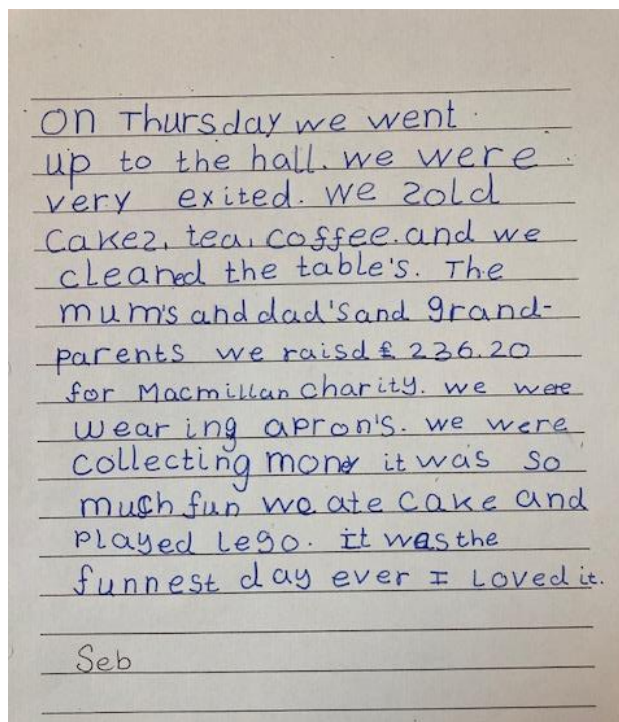 On Thursday we went
up to the hall. we were
very exited. We sold
Cakes, tea, coffee.and we
cleaned the table's. The
mum's and dad's and grand-
parents we raisd £236.20
for Macmillan Charity. we were
wearing apron's. we were
collecting money it was so
much fun we ate cake and
played Lego. it was the
funnest day ever I Loved it.
Seb